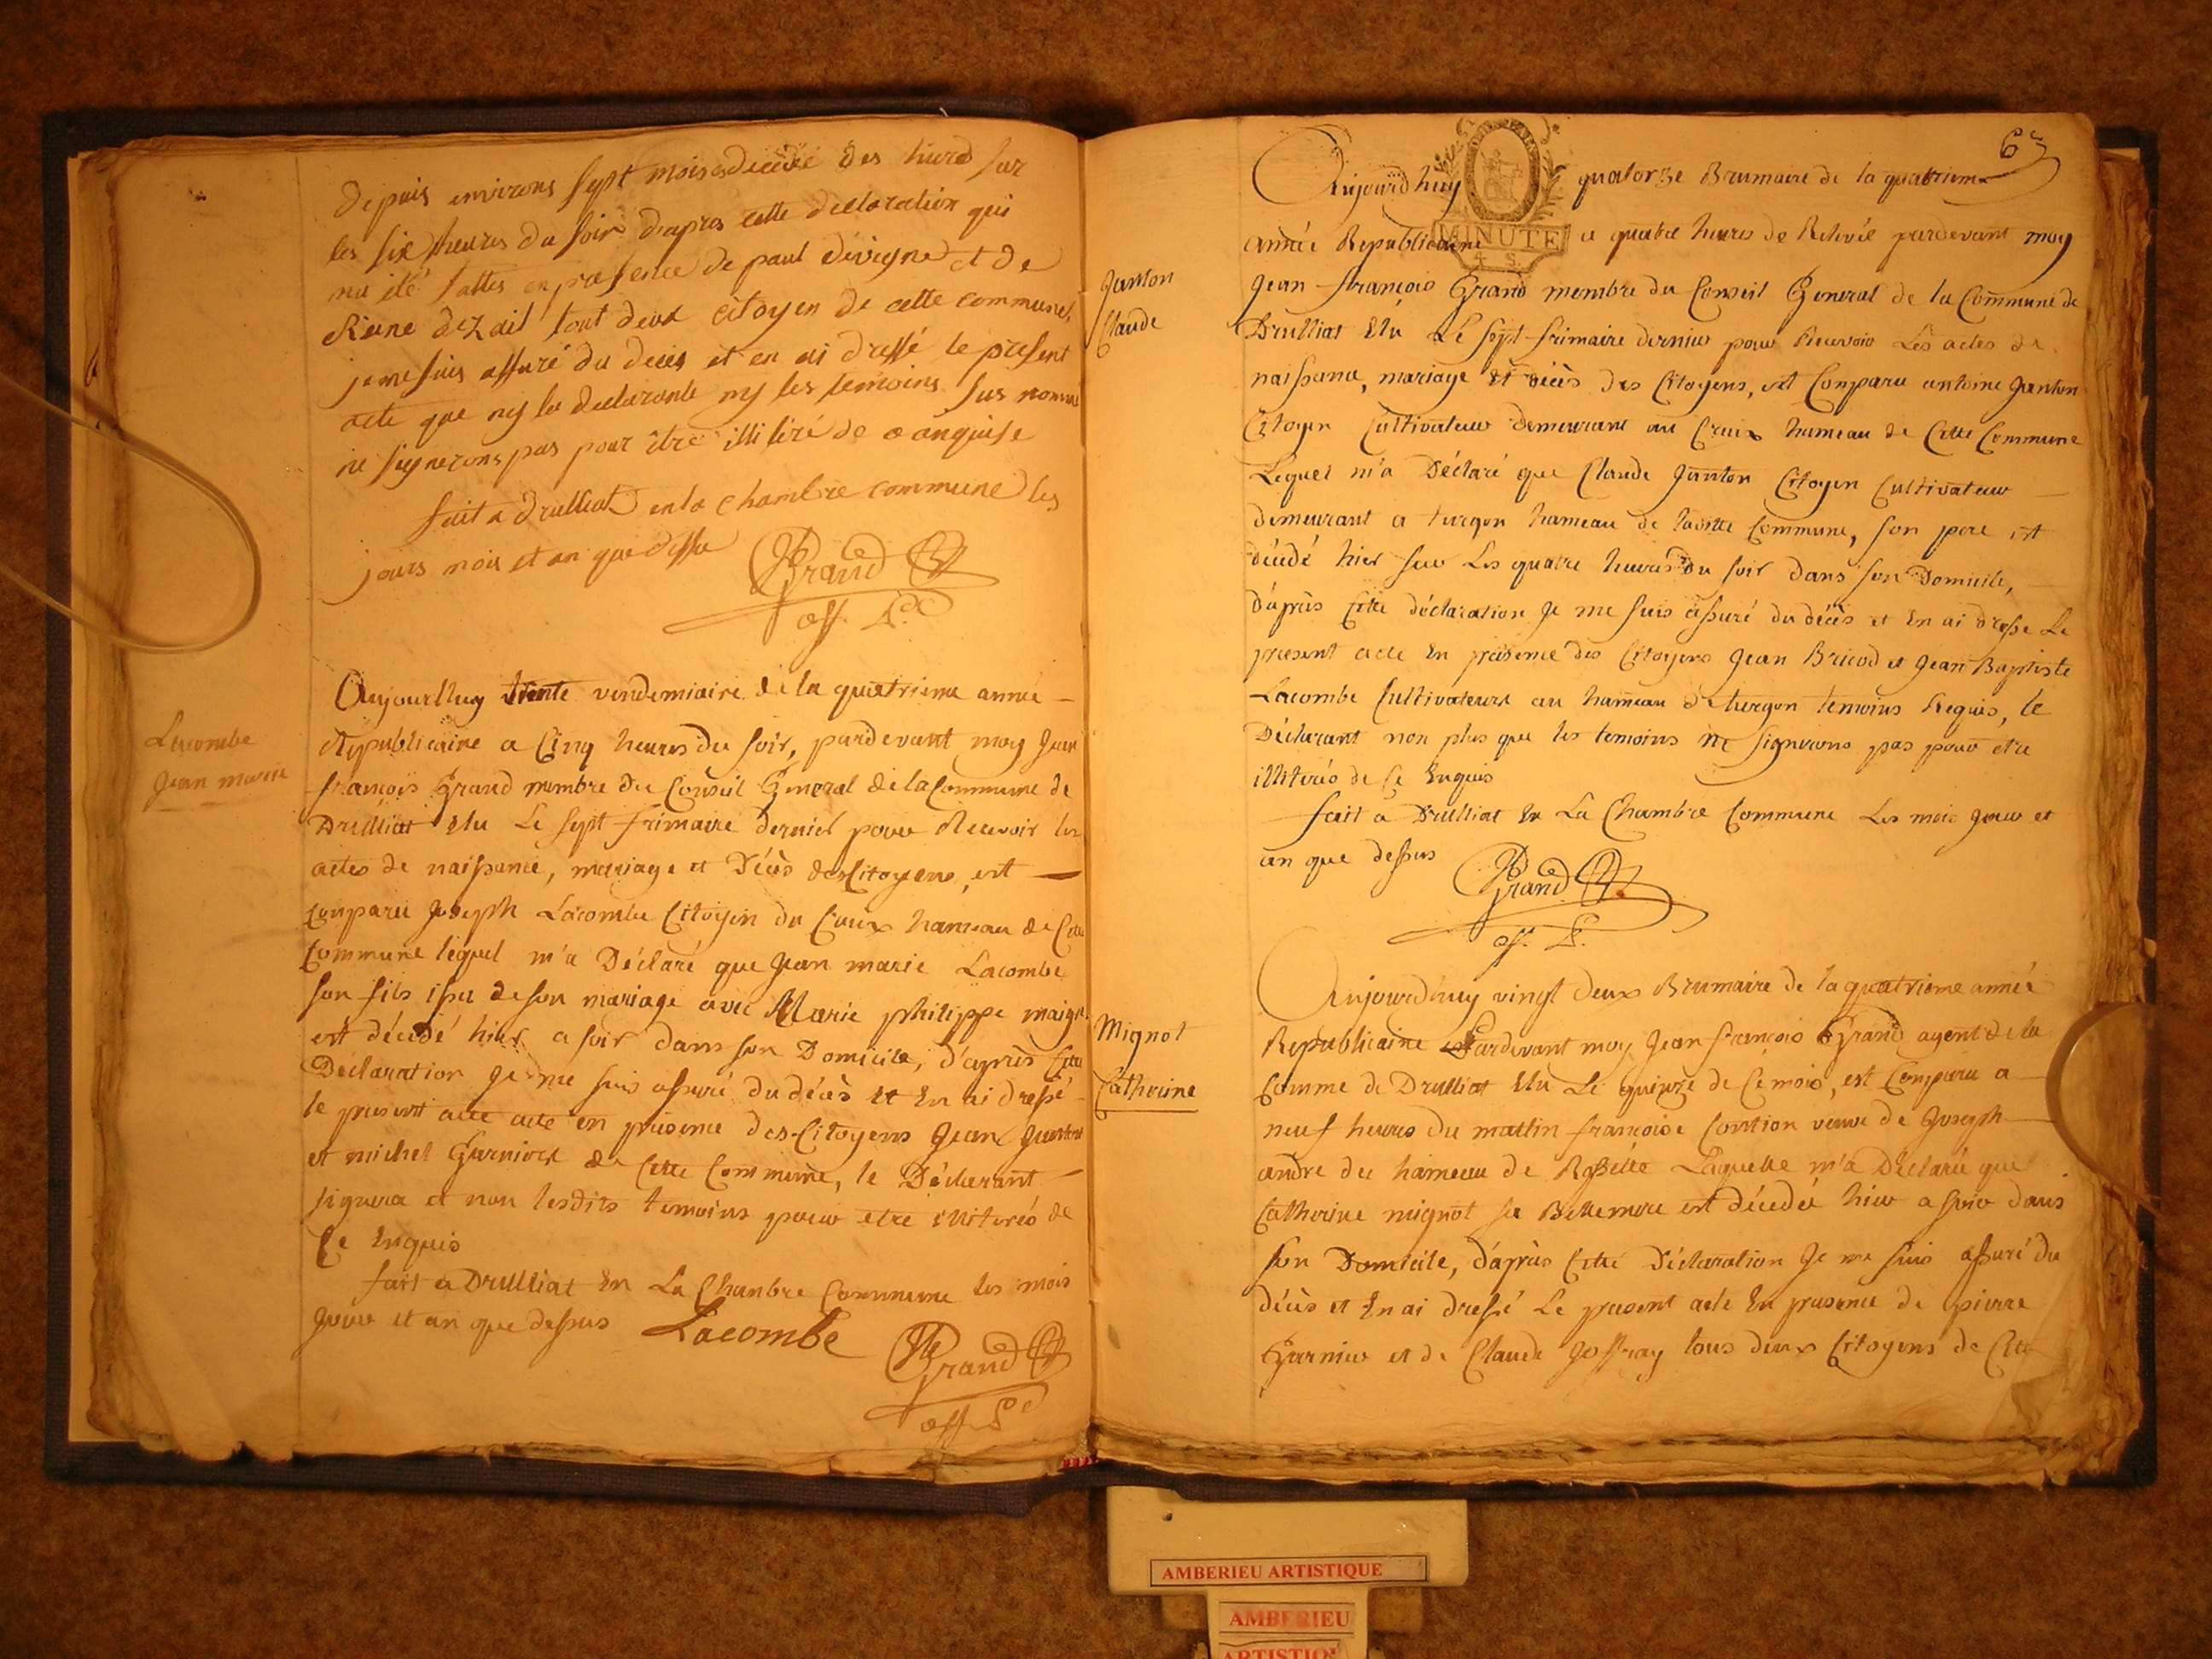 depuis environs sept mois decedée des hiere sur
les six heures du soir d'apres cette declaration qui
ma été faittes en presence de paul devigne et de
tout deux citoyen de cette commune,
je me suis assuré du deces et en ai dressé le present
acte que ny la declarante ny les temoins sus nommé
ne signerons pas pour être illitiré de
fait a druliat en la chambre commune les
jours mois et an que dessu Grand
off. P.
Lacombe
Jean marie
Aujourlhuy trente vendemiaire de la quatrieme année
Republicaine a Cinq heures du soir, pardevant moy Jean
françois Grand membre du Conseil General de la Commune de
Drulliat Elu Le sept frimaire dernier pour Recevoir les
actes de naissance, mariage et Décès des Citoyens, est
comparu Joseph Lacombe Citoyen du Creux hameau de Cette
Commune lequel m'a Déclaré que Jean marie Lacombe
son fils issu de son mariage avec Marie philippe
est décédé hier a soir dans son Domicile, d'après Cette
Déclaration Je me suis assuré du décès et En ai dressé
le present acte acte en présence des Citoyens Jean Janton
et michel Garnier de Cette Commune, le Déclarant
signera et non lesdits temoins pour etre illiterés de
Ce Enquis
fait a Drulliat En La Chambre Commune les mois
Jour et an que dessus Lacombe
Grand
off. P.
67
MINUTE
4 S.
Janton
Claude
Aujourd'huy quatorze Brumaire de la quatrieme
année Republicaine a quatre heures de Relevée pardevant moy
Jean-françois Grand membre du Conseil General de la Commune de
Drulliat Elu Le sept frimaire dernier pour Recevoir Les actes de
naissance, mariage Et décès des Citoyens, est Comparu antoine Janton
Citoyen Cultivateur demeurant au Creux hameau de Cette Commune
Lequel m'a Déclaré que Claude Janton Citoyen Cultivateur
demeurant a turgon hameau de laditte Commune, son pere est
décédé hier sur Les quatre heures du soir dans son Domicile,
D'après Cette déclaration Je me suis assuré du décès et En ai dressé Le
present acte En présence des Citoyens Jean Bricod et Jean Baptiste
Lacombe Cultivateurs au hameau de turgon temoins Requis, le
Déclarant non plus que les temoins ne signerons pas pour etre
illiterés de Ce Enquis
fait a Drulliat En La Chambre Commune Les mois Jour et
an que dessus
Grand
off. P.
Mignot
Catherine
Aujourd'huy vingt deux Brumaire de la quatrieme année
Republicaine Pardevant moy Jean françois Grand agent de la
Comme de Drulliat Elu Le quinze de Ce mois, est Comparu a
neuf heures du mattin françoise veuve de Joseph
andre du hameau de Laquelle m'a Déclaré que
Catherine mignot sa Bellemere est décedée hier a soir dans
son Domicile, d'après Cette Déclaration Je me suis assuré du
décès et En ai dressé Le present acte En presence de pierre
Garnier et de Claude Joffray tous deux Citoyens de Cette
AMBERIEU ARTISTIQUE
AMBERIEU
ARTISTIQUE